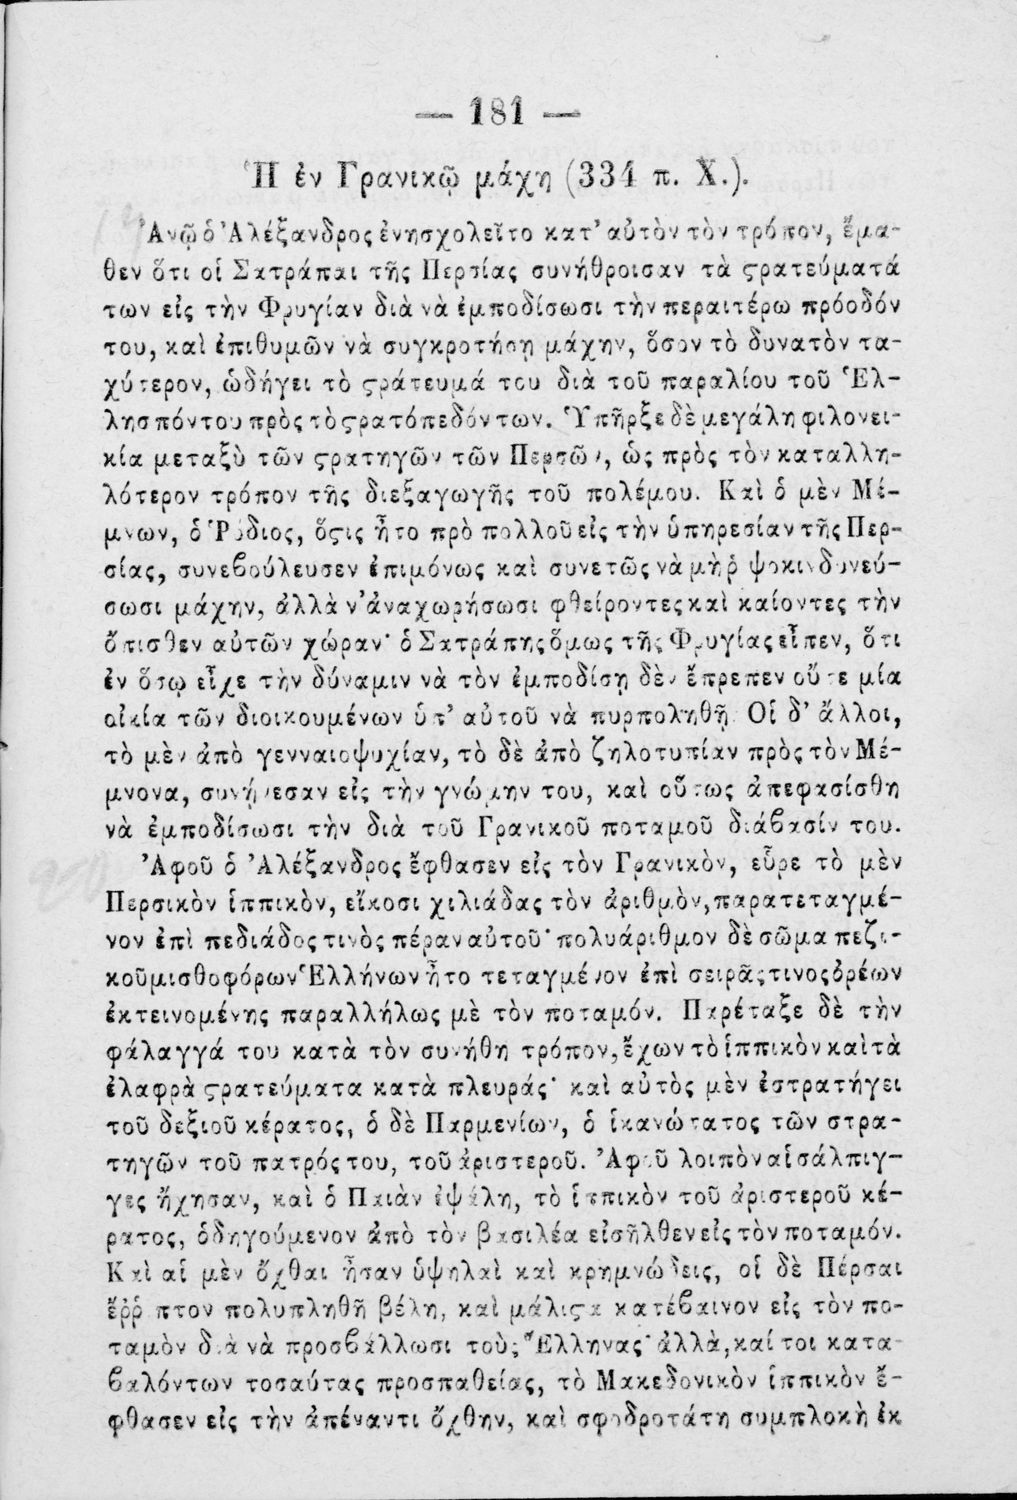 — 181 —
Ἡ ἐν Γρανικῷ μάχη (334 π. Χ.).
Ἀνῷ ὁ Ἀλέξανδρος ἐνησχολεῖτο κατ' αὐτὸν τὸν τρόπον, ἔμα-
θεν ὅτι οἱ Σατράπαι τῆς Περσίας συνήθροισαν τὰ ϛρατεύματά
των εἰς τὴν Φρυγίαν διὰ νὰ ἐμποδίσωσι τὴν περαιτέρω πρόοδόν
του, καὶ ἐπιθυμῶν νὰ συγκροτήσῃ μάχην, ὅσον τὸ δυνατὸν τα-
χύτερον, ὡδήγει τὸ ϛράτευμά του διὰ τοῦ παραλίου τοῦ Ἑλ-
λησπόντου πρὸς τὸ ϛρατόπεδόν των. Ὑπῆρξε δὲ μεγάλη φιλονει-
κία μεταξὺ τῶν ϛρατηγῶν τῶν Περσῶν, ὡς πρὸς τὸν καταλλη-
λότερον τρόπον τῆς διεξαγωγῆς τοῦ πολέμου. Καὶ ὁ μὲν Μέ-
μνων, ὁ Ῥόδιος, ὅϛις ἦτο πρὸ πολλοῦ εἰς τὴν ὑπηρεσίαν τῆς Περ-
σίας, συνεϐούλευσεν ἐπιμόνως καὶ συνετῶς νὰ μὴ ῥιψοκινδυνεύ-
σωσι μάχην, ἀλλὰ ν' ἀναχωρήσωσι φθείροντες καὶ καίοντες τὴν
ὄπισθεν αὐτῶν χώραν· ὁ Σατράπης ὅμως τῆς Φρυγίας εἶπεν, ὅτι
ἐν ὅσῳ εἶχε τὴν δύναμιν νὰ τὸν ἐμποδίσῃ δὲν ἔπρεπεν οὔτε μία
οἰκία τῶν διοικουμένων ὑπ' αὐτοῦ νὰ πυρποληθῇ. Οἱ δ' ἄλλοι,
τὸ μὲν ἀπὸ γενναιοψυχίαν, τὸ δὲ ἀπὸ ζηλοτυπίαν πρὸς τὸν Μέ-
μνονα, συνῄνεσαν εἰς τὴν γνώμην του, καὶ οὕτως ἀπεφασίσθη
νὰ ἐμποδίσωσι τὴν διὰ τοῦ Γρανικοῦ ποταμοῦ διάϐασίν του.
Ἀφοῦ ὁ Ἀλέξανδρος ἔφθασεν εἰς τὸν Γρανικὸν, εὗρε τὸ μὲν
Περσικὸν ἱππικὸν, εἴκοσι χιλιάδας τὸν ἀριθμὸν, παρατεταγμέ-
νον ἐπὶ πεδιάδος τινὸς πέραν αὐτοῦ· πολυάριθμον δὲ σῶμα πεζι-
κοῦ μισθοφόρων Ἑλλήνων ἦτο τεταγμένον ἐπὶ σειρᾶς τινος ὀρέων
ἐκτεινομένης παραλλήλως μὲ τὸν ποταμόν. Παρέταξε δὲ τὴν
φάλαγγά του κατὰ τὸν συνήθη τρόπον, ἔχων τὸ ἱππικὸν καὶ τὰ
ἐλαφρὰ ϛρατεύματα κατὰ πλευράς· καὶ αὐτὸς μὲν ἐστρατήγει
τοῦ δεξιοῦ κέρατος, ὁ δὲ Παρμενίων, ὁ ἱκανώτατος τῶν στρα-
τηγῶν τοῦ πατρός του, τοῦ ἀριστεροῦ. Ἀφοῦ λοιπὸν αἱ σάλπιγ-
γες ἤχησαν, καὶ ὁ Παιὰν ἐψάλη, τὸ ἱππικὸν τοῦ ἀριστεροῦ κέ-
ρατος, ὁδηγούμενον ἀπὸ τὸν βασιλέα εἰσῆλθεν εἰς τὸν ποταμόν.
Καὶ αἱ μὲν ὄχθαι ἦσαν ὑψηλαὶ καὶ κρημνώδεις, οἱ δὲ Πέρσαι
ἔῤῥιπτον πολυπληθῆ βέλη, καὶ μάλιϛα κατέϐαινον εἰς τὸν πο-
ταμὸν διὰ νὰ προσϐάλλωσι τοὺς Ἕλληνας· ἀλλὰ, καί τοι κατα-
ϐαλόντων τοσαύτας προσπαθείας, τὸ Μακεδονικὸν ἱππικὸν ἔ-
φθασεν εἰς τὴν ἀπέναντι ὄχθην, καὶ σφοδροτάτη συμπλοκὴ ἐκ